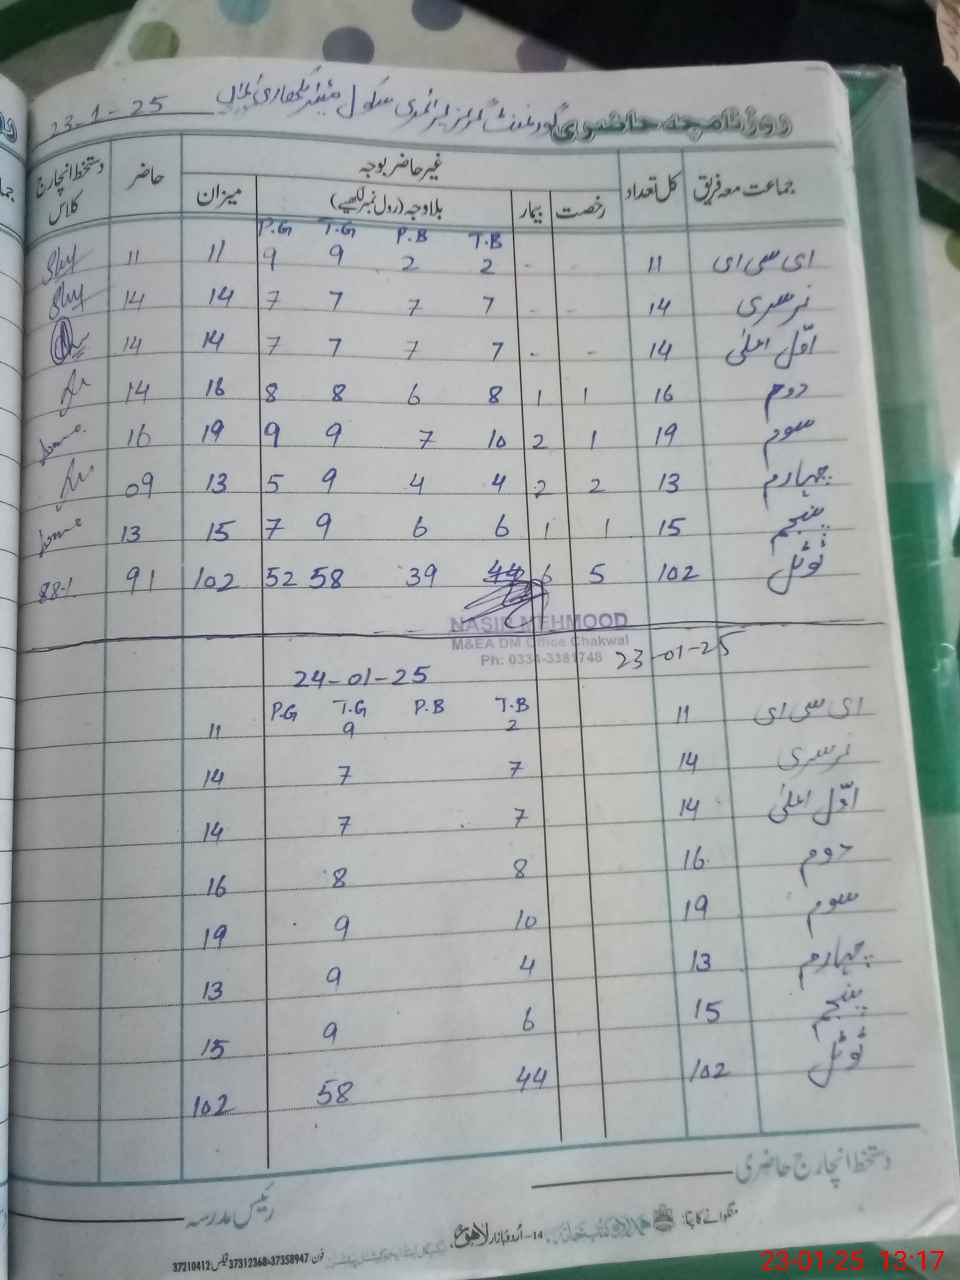 روزنامچہ حاضری گورنمنٹ گرلز پرائمری سکول 23-1-25
جماعت معہ فریق کل تعداد غیر حاضر بوجہ حاضر دستخط انچارج کلاس
رخصت بیمار بلاوجہ (رول نمبر لکھیے) میزان
T.B P.B T.G P.G
ای سی ای 11 - - 2 2 9 9 11 11
نرسری 14 - - 7 7 7 7 14 14
اوّل اعلیٰ 14 - - 7 7 7 7 14 14
دوم 16 1 1 8 6 8 8 16 14
سوم 19 1 2 10 7 9 9 19 16
چہارم 13 2 2 4 4 9 5 13 09
پنجم 15 1 1 6 6 9 7 15 13
ٹوٹل 102 5 6 44 39 58 52 102 91 88-1
NASIR MEHMOOD
M&EA DM Office Chakwal
Ph: 0334-3381748
23-01-25
24-01-25
T.B P.B T.G P.G
ای سی ای 11 2 9 11
نرسری 14 7 7 14
اوّل اعلیٰ 14 7 7 14
دوم 16 8 8 16
سوم 19 10 9 19
چہارم 13 4 9 13
پنجم 15 6 9 15
ٹوٹل 102 44 58 102
دستخط انچارج حاضری
رئیس مدرسہ
منگوانے کا پتا: 14-اُردو بازار لاہور
فون 37358947-37312368 فیکس 37210412
23-01-25 13:17